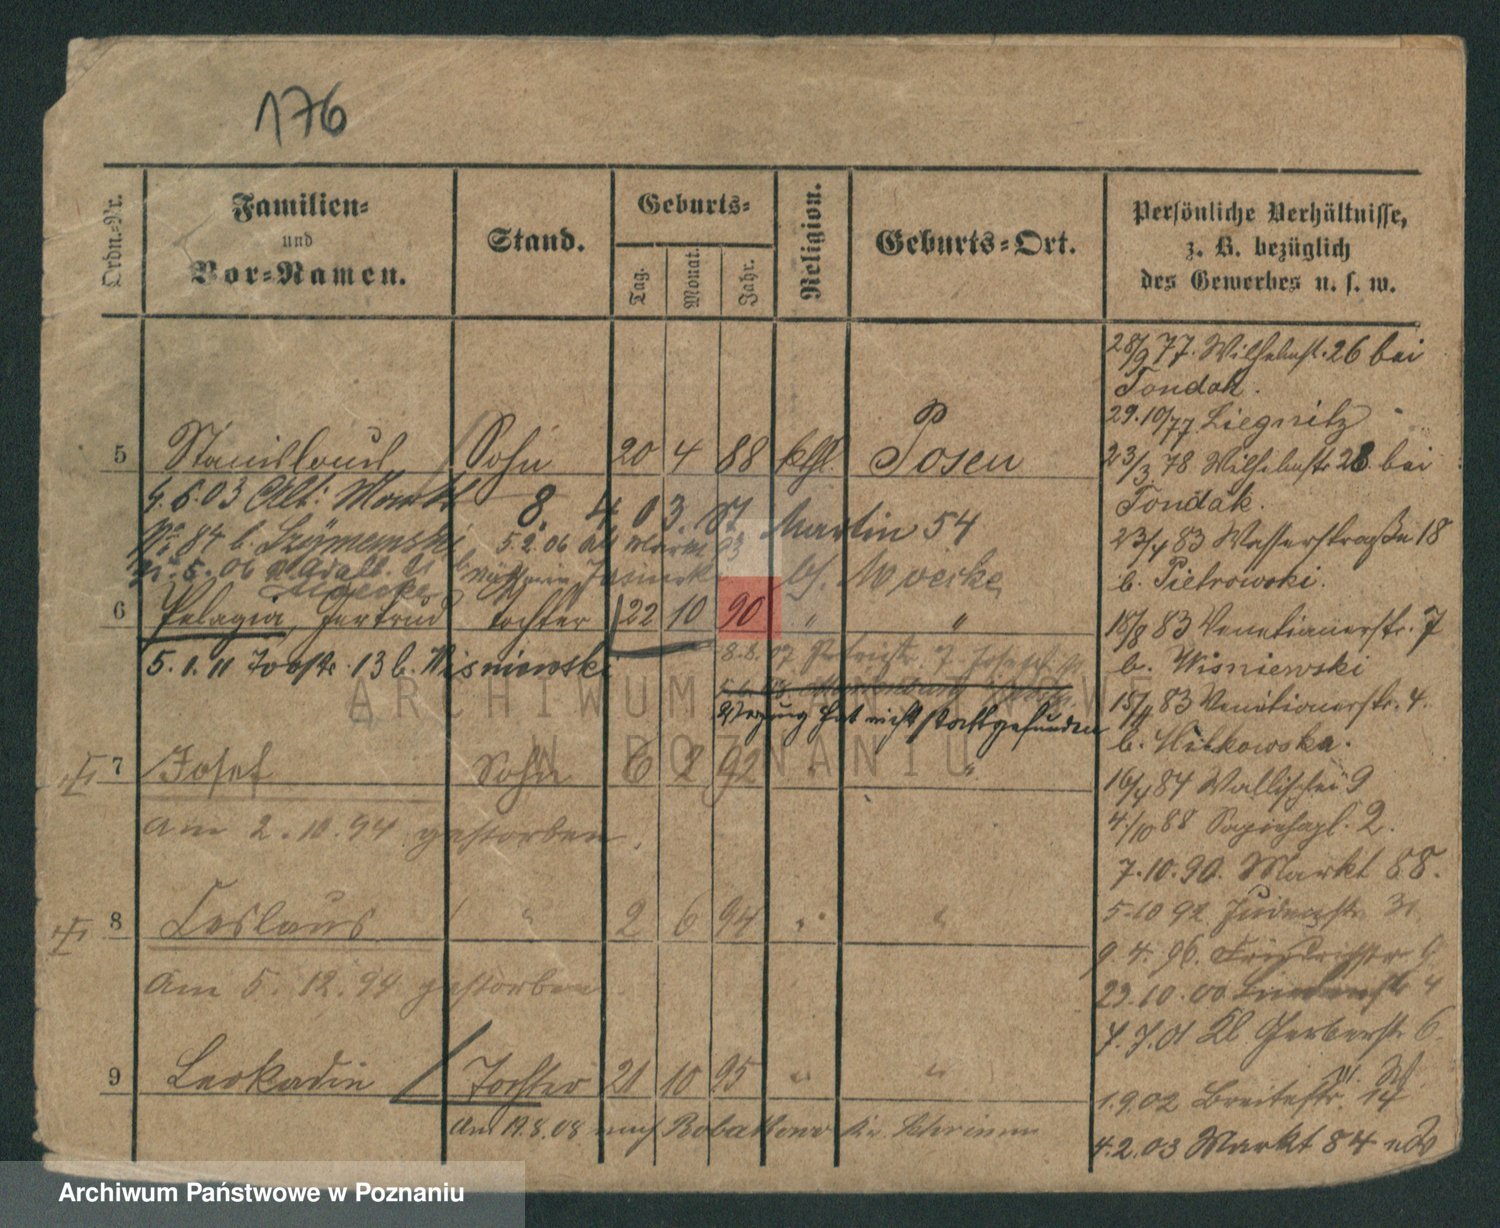 176
Ordn.-Nr.
Familien-
und
Vor-Namen.
Stand.
Geburts-
Tag.
Monat.
Jahr.
Religion.
Geburts-Ort.
Persönliche Verhältnisse,
z. B. bezüglich
des Gewerbes u. s. w.
28/9 77. Wilhelmst. 26 bei
Tondak.
29.10/77 Liegnitz
23/3 78 Wilhelmstr 28 bei
Tondak.
23/4 83 Wasserstraße 18
b. Pietrowski.
18/8 83 Venetianerstr. 7
b. Wisniewski
18/11 83 Venetianerstr. 4.
b. Witkowska.
16/4 84 Wallischei 9
4/10 88 Sapiehapl. 2.
7.10.90. Markt 88.
5.10 92 Judenstr 31
9.4.96. Friedrichstr 9
23.10.00 4
4.7.01 Kl Gerberstr 6.
1.9.02 Breitestr. 14
4.2.03 Markt 84
5 Stanislaus Sohn 20 4 88 kath. Posen
4.6.03 Alt. Markt 8. 4 03. St Martin 54
No 84 b. Szymanski 5.2.06 Alt Markt 93
5.06
6 Pelagia, Gertrud Tochter 22 10 90 " "
5.1.11 13 b. Wisniewski 8.8.07
Verzug hat nicht stattgefunden
7 Josef Sohn 6 2 92 " "
am 2.10.94 gestorben.
8 Ceslaus " 2 6 94 " "
am 5.12.94 gestorben
9 Leokadia Tochter 21 10 95 " "
am 19.8.08 nach
ARCHIWUM PAŃSTWOWE
W POZNANIU
Archiwum Państwowe w Poznaniu